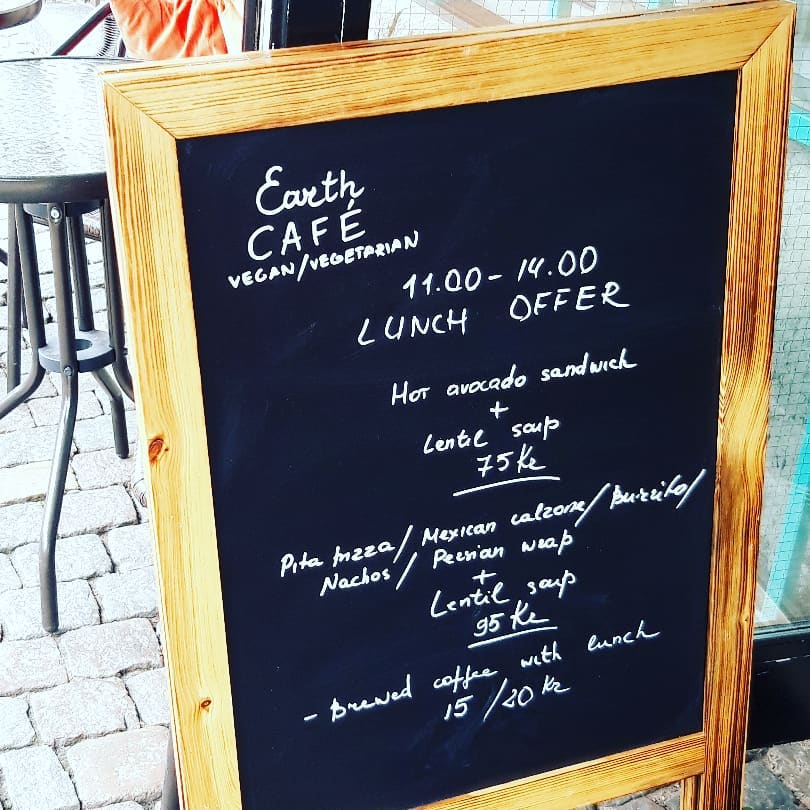 Earth
CAFÉ
VEGAN/VEGETARIAN
11.00 - 14.00
LUNCH OFFER
Hot avocado sandwich
+
Lentil soup
75 Kr
Pita pizza/Mexican calzone/Burrito/
Nachos/Persian wrap
+
Lentil soup
95 Kr
- Brewed coffee with lunch
15/20 Kr